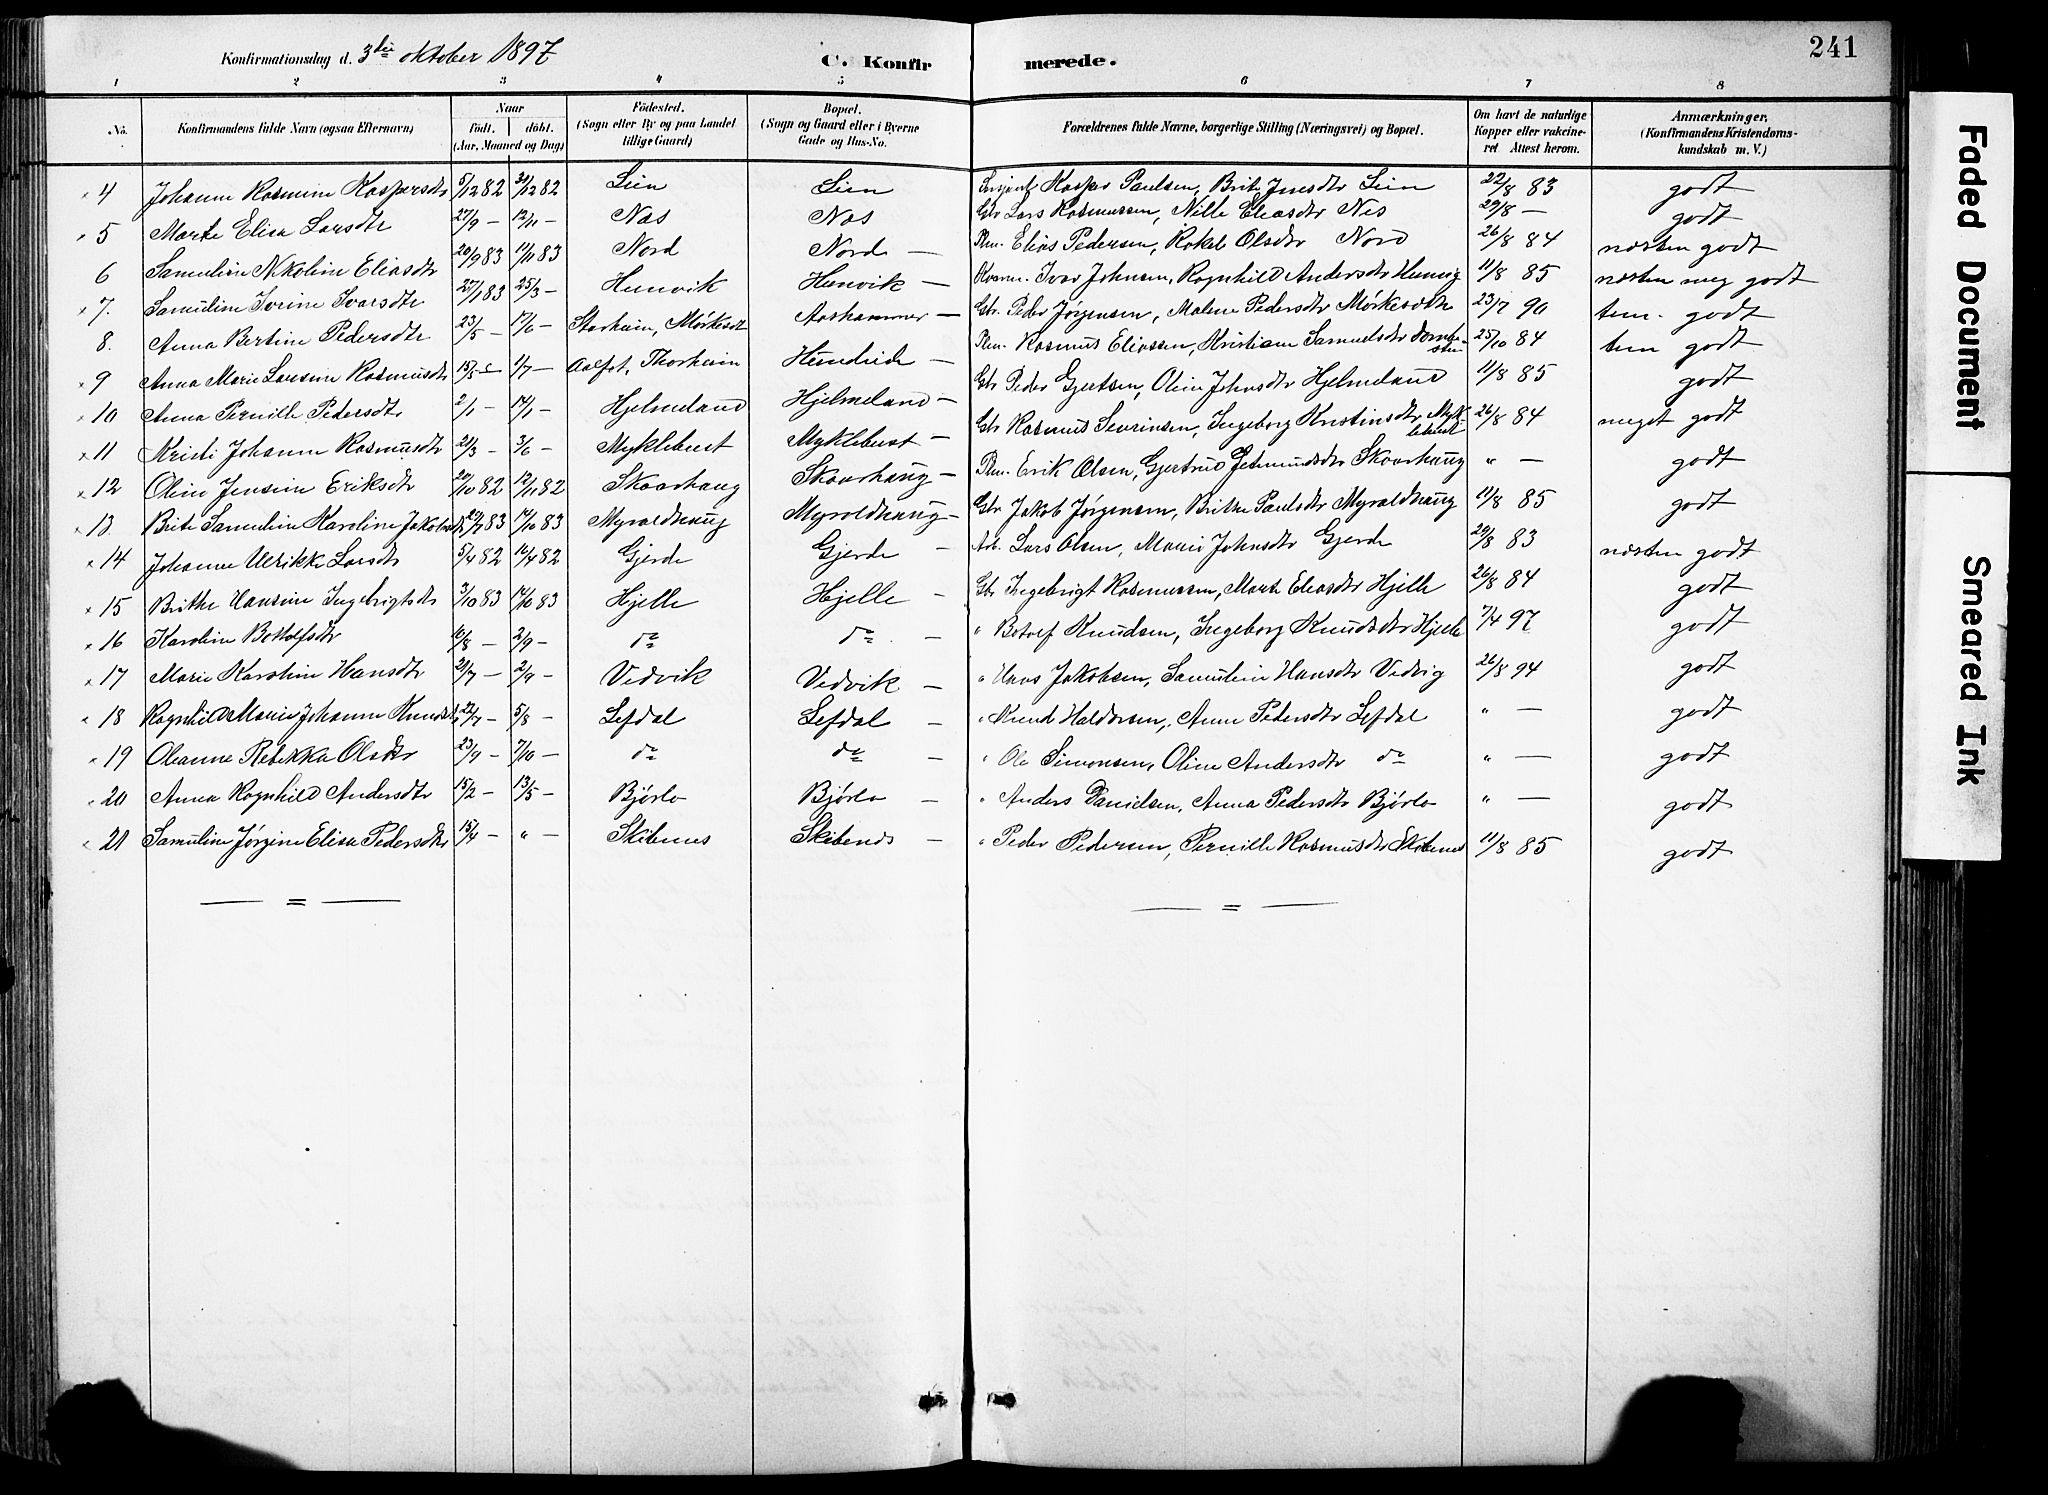 Konfirmationsdag d. 3die oktober 1897
C. Konfir merede.
241
1 2 3 4 5 6 7 8
No. Konfirmandens fulde Navn (ogsaa Efternavn) Naar født. døbt. (Aar, Maaned og Dag) Fødested. (Sogn eller By og paa Landet tillige Gaard) Bopæl. (Sogn og Gaard eller i Byerne Gade og Hus-No. Forældrenes fulde Navne, borgerlige Stilling (Næringsvei) og Bopæl. Om havt de naturlige Kopper eller vakcineret. Attest herom. Anmærkninger. (Konfirmandens Kristendomskundskab m. V.)
4 Johanne Rasmine Kaspersdtr 5/12 82 31/12 82 Lien Lien Kasper Paulsen, Brite Jensdtr Lien 22/8 83 godt
5 Marte Elisa Larsdtr 27/9 — 12/11 Nas Nas Gbr Lars Rasmussen, Nille Eliasdtr Nes 29/8 — godt
6 Samuline Nikoline Eliasdtr 20/9 83 11/11 83 Nord Nord — Elias Pedersen, Rakel Olsdtr Nord 26/8 84 næsten godt
7. Samuline Ivrine Ivarsdtr 27/1 83 25/3 — Hunvik Hunvik — Ivar Johnsen, Ragnhild Andersdtr 11/8 85 næsten meg godt
8. Anna Bertine Pedersdtr 23/5 — 17/6 — Starheim, Mørkesdt Aashammer — Gbr. Peder Jørgensen, Malene Pedersdtr 23/7 90 tem. godt
9 Anna Marie Larsine Rasmusdtr 15/5 — 1/7 — Aalfot, Thorheim Hundeide — Rasmus Eliassen, Kristiane Samuelsdtr 25/10 84 tem godt
10 Anna Pernille Pedersdtr 2/1 — 14/1 — Hjelmeland Hjelmeland — Gbr Peder Gjertsen, Oline Johnsdtr Hjelmeland 11/8 85 godt
11 Kristi Johanne Rasmusdtr 21/3 — 3/6 — Myklebust Myklebust — Gbr Rasmus Severinsen, Ingeborg Kristinsdtr Myklebust 26/8 84 meget godt
12 Oline Jensine Eriksdtr 20/10 82 12/11 82 Skaarhaug Skaarhaug — Erik Olsen, Gjertrud Jetmundsdtr Skaarhaug " — godt
13. Brite Samuline Karoline Jakobsdtr 29/7 83 14/10 83 Myroldhaug Myroldhaug — Gbr Jakob Jørgensen, Brithe Paulsdtr Myroldhaug 11/8 85 godt
14 Johanne Ulrikke Larsdtr 5/4 82 16/4 82 Gjerde Gjerde — Arb. Lars Olsen, Marie Johnsdtr Gjerde 29/8 83 næsten godt
15 Brithe Hansine Ingebrigtsdtr 3/10 83 14/10 83 Hjelle Hjelle — Gbr Ingebrigt Rasmussen, Marte Eliasdtr Hjelle 26/8 84 godt
16 Karoline Botolfsdtr 16/8 — 2/9 — do do — " Botolf Knudsen, Ingeborg Knudsdtr Hjelle 7/4 97 godt
17 Marie Karoline Hansdtr 21/7 — 2/9 — Vedvik Vedvik — " Hans Jakobsen, Samuline Hansdtr Vedvig 26/8 94 godt
18 Ragnhild Marie Johanne Knudsdtr 22/7 — 5/8 — Lefdal Lefdal — " Knud Haldorsen, Anne Pedersdtr Lefdal " — godt
19 Oleanne Rebekka Olsdtr 23/9 — 7/10 — do do — " Ole Simonsen, Oline Andersdtr do " — godt
20 Anna Ragnhild Andersdtr 15/2 — 13/5 — Bjørlo Bjørlo — " Anders Danielsen, Anna Pedersdtr Bjørlo " — godt
21 Samuline Jørgine Elisa Pedersdtr 15/4 — " — Skibenes Skibenes — " Peder Pedersen, Pernille Rasmusdtr Skibenes 11/8 85 godt
Faded Document
Smeared Ink